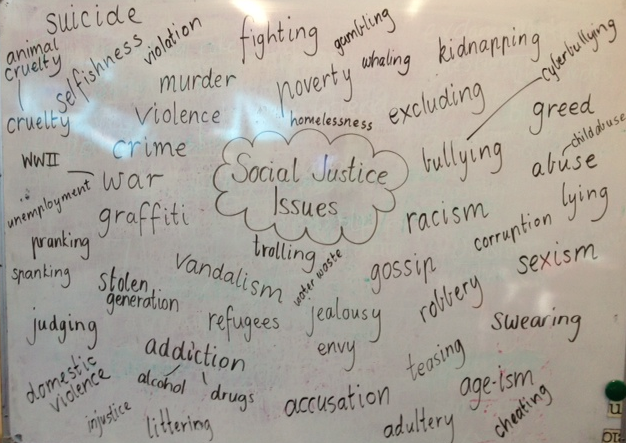 suicide
animal
cruelty
selfishness
violation
fighting
gambling
kidnapping
cyberbullying
murder
poverty
whaling
cruelty
violence
homelessness
excluding
greed
WWII
crime
Social Justice
Issues
bullying
child abuse
abuse
war
unemployment
graffiti
racism
lying
pranking
trolling
corruption
spanking
stolen
generation
vandalism
water waste
gossip
sexism
judging
refugees
jealousy
robbery
swearing
addiction
envy
teasing
domestic
violence
alcohol
drugs
accusation
age-ism
injustice
littering
adultery
cheating